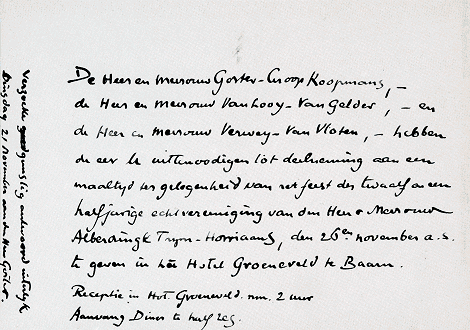 De Heer en Mevrouw Gorter-Cnoop Koopmans, –
de Heer en Mevrouw Van Looy-Van Gelder, – en
de Heer en Mevrouw Verwey-Van Vloten, – hebben
de eer U uittenoodigen tot deelneming aan een
maaltyd ter gelegenheid van het feest der twaalf en een
halfjarige echtvereeniging van den Heer en Mevrouw
Alberdingk Thym-Horriaans, den 26en november a.s.
te geven in het Hotel Groeneveld te Baarn.
Receptie in Hot. Groeneveld. nm. 2 uur
Aanvang Diner te half zes.
Verzoeke gunstig antwoord uiterlyk
Dinsdag 21 November aan den Heer Gorter.